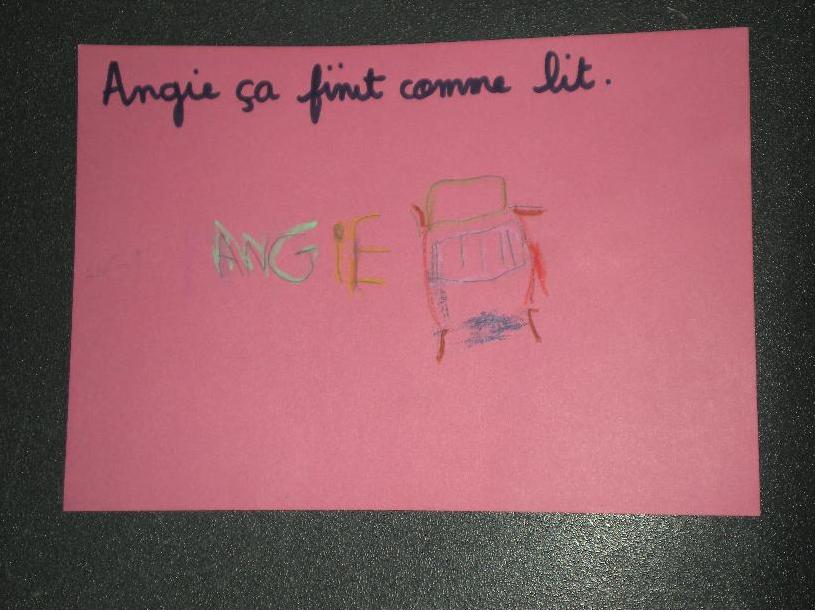 Angie ça finit comme lit.
ANGiE